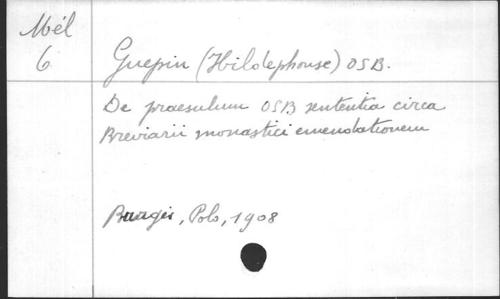 Mél
6
Guepin (Hildephonse) OSB.
De praesulum OSB sententia circa
Breviarii monastici emendationem
Burgis, Polo, 1908